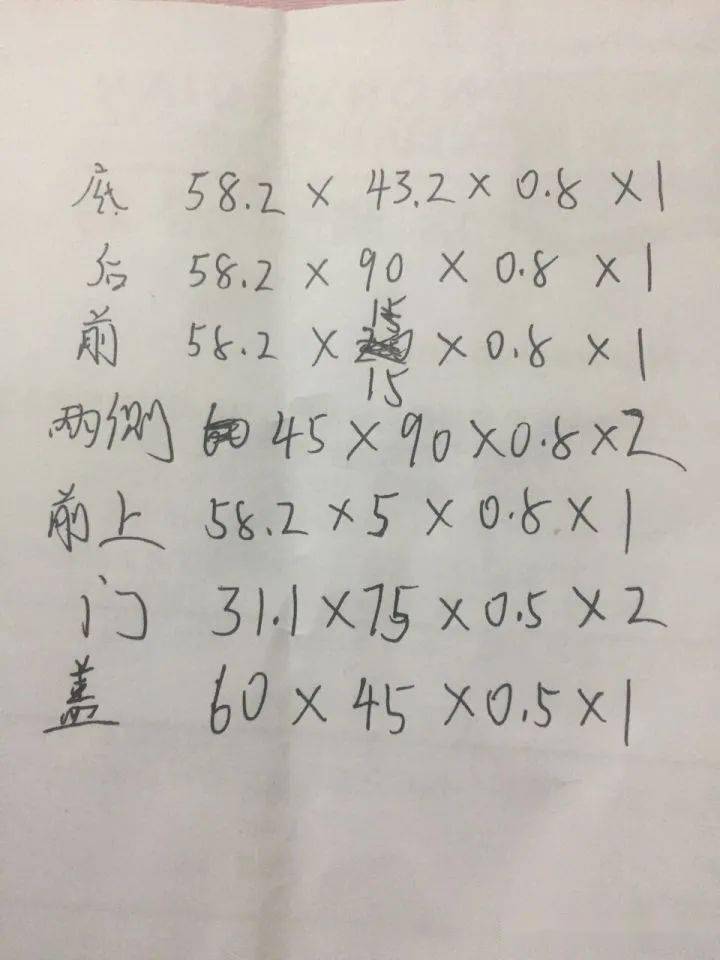 底 58.2 × 43.2 × 0.8 × 1
后 58.2 × 90 × 0.8 × 1
15
前 58.2 × × 0.8 × 1
15
两侧 45 × 90 × 0.8 × 2
前上 58.2 × 5 × 0.8 × 1
门 31.1 × 75 × 0.5 × 2
盖 60 × 45 × 0.5 × 1